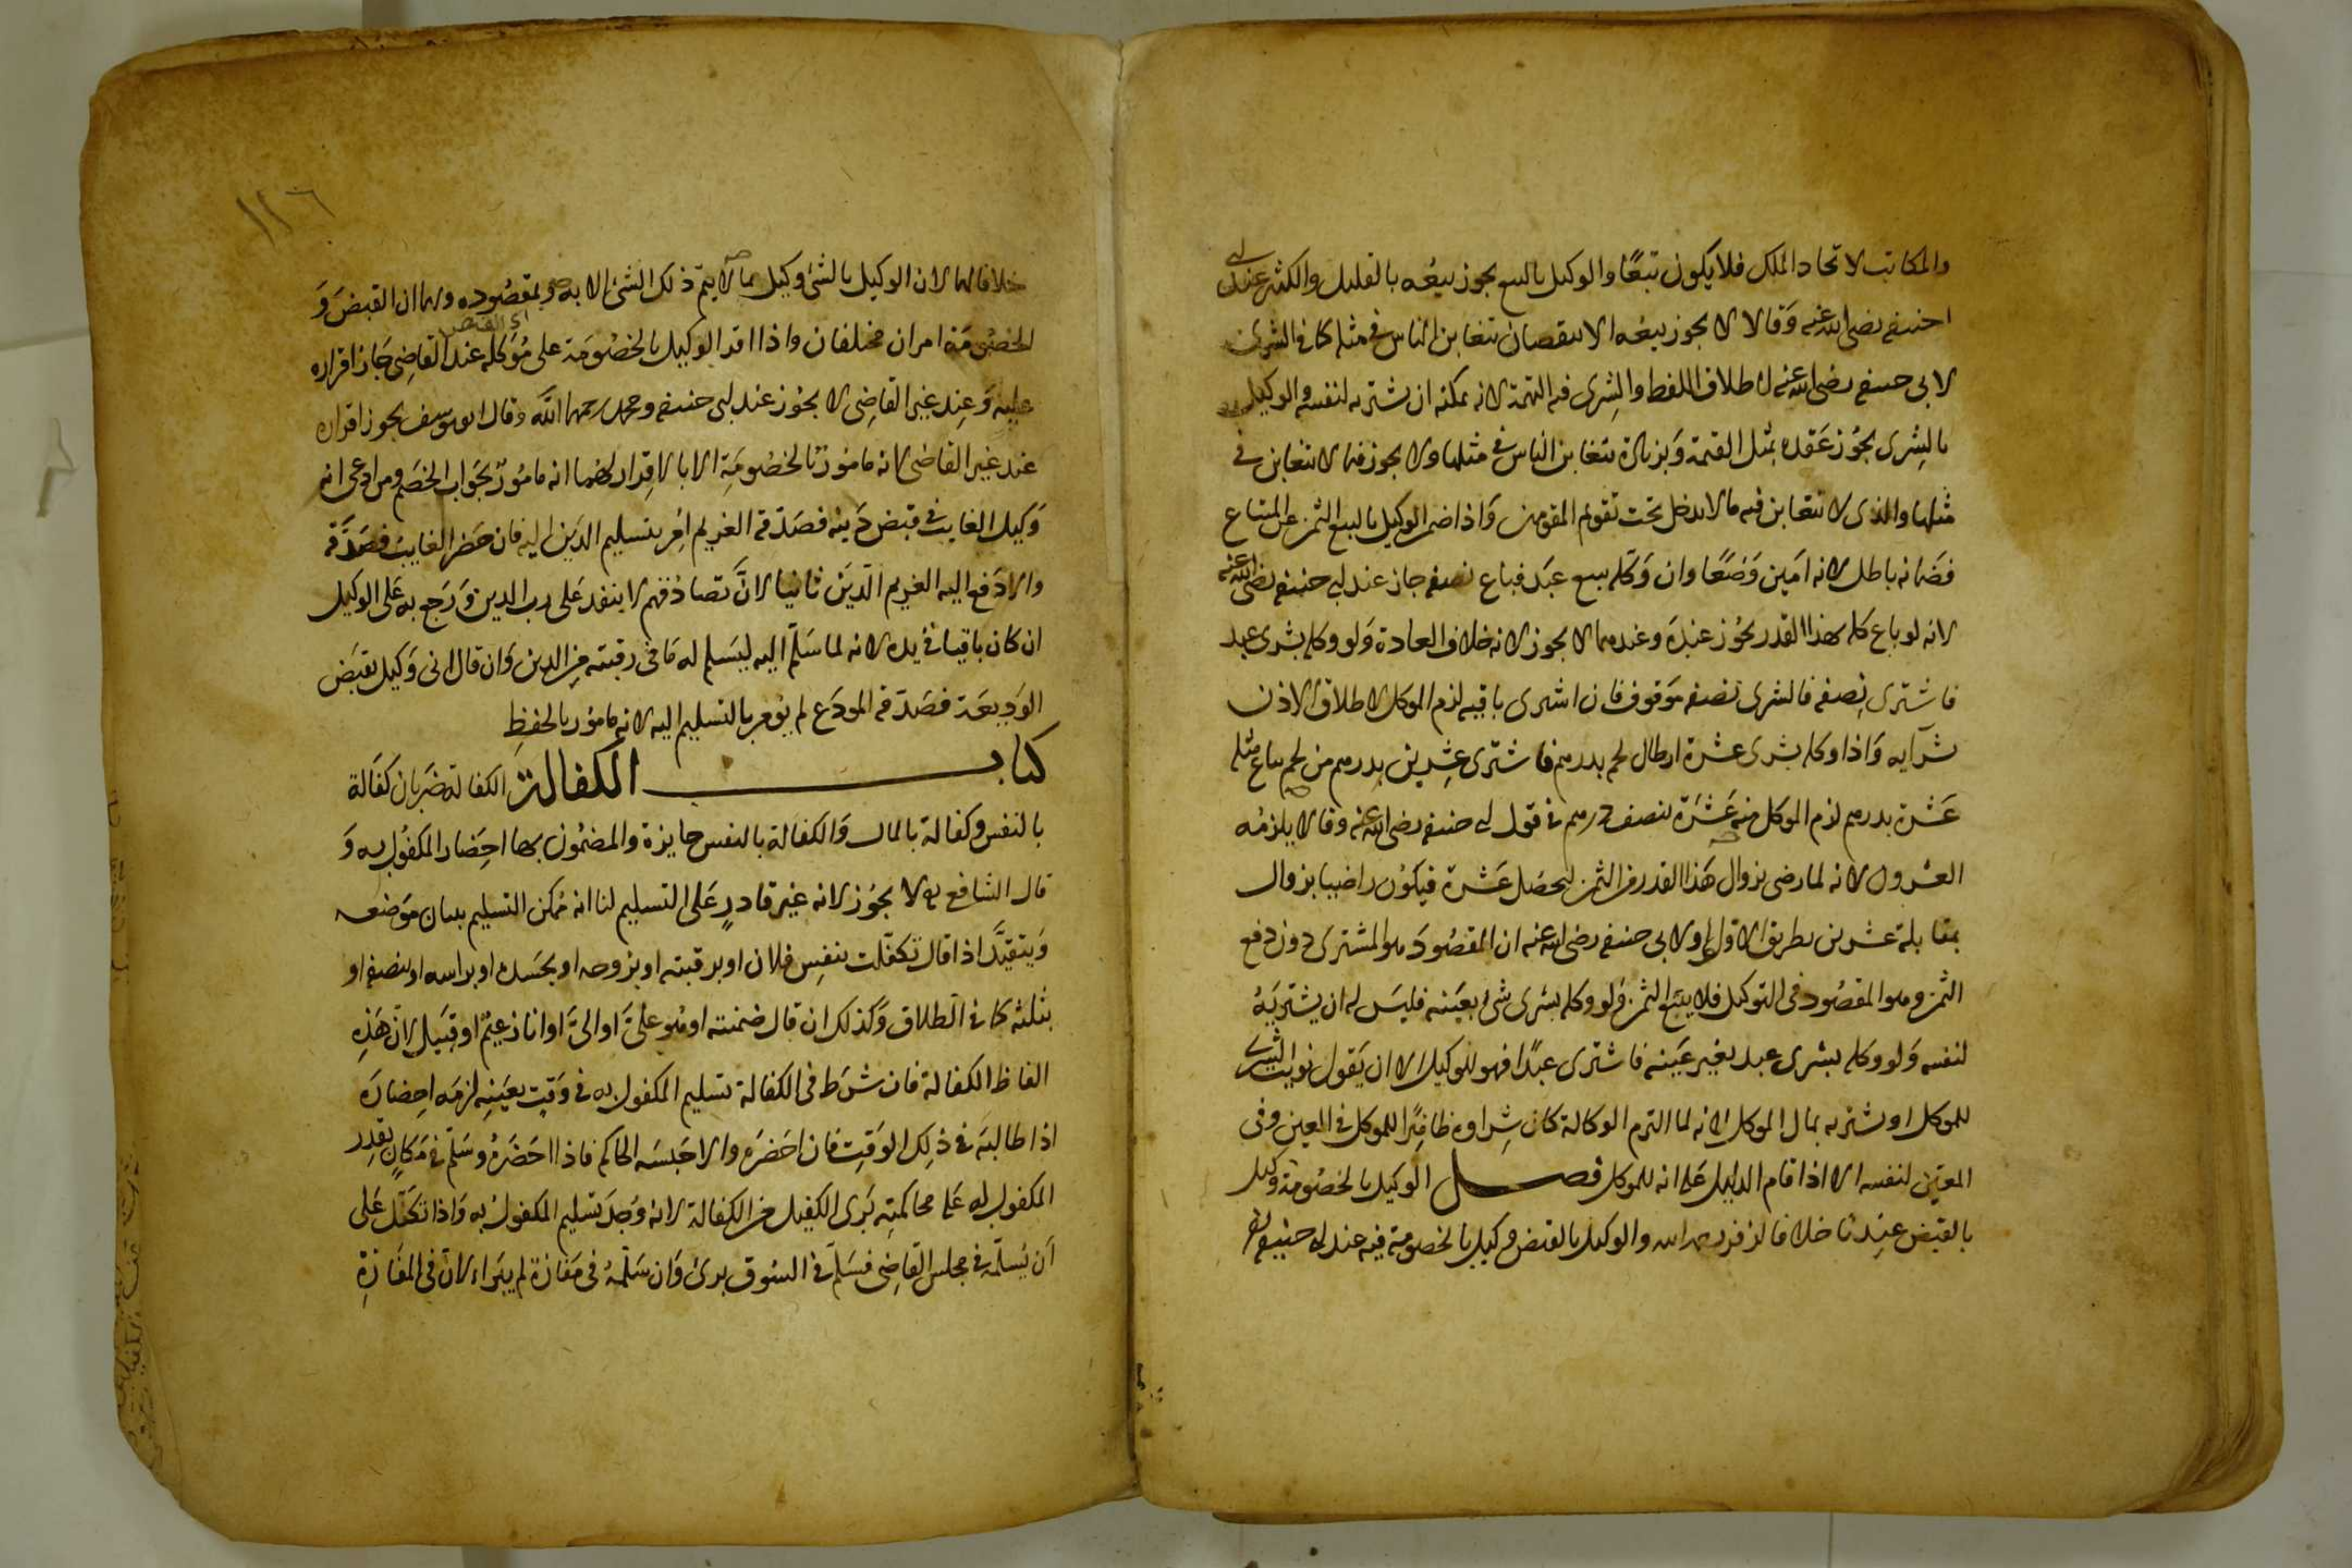 والمكاتب لاتحاد الملك فلا يكون تبعًا والوكيل بالبيع يجوز بيعه بالقليل والكثير عند ابي
حنيفه رضى الله عنه وَقالا لا يجوز بيعه الا بنقصان يتغابن الناس فى مثله كما فى الشرى
لابى حنيفه رضى الله عنه اطلاق اللفظ والشِرى فيه التهمة لانه يمكنه ان يشتريه لنفسه والوكيل
بالشِرى يجُوز عَقده بمثل القيمة وَبزيادة يتغابن الناس فى مثلها ولا يجوز فيما لا يتغابن فى
مثلها والذى لا يتغابن فيه ما لا يدخل تحت تقويم المقومين وَاذا ضمن الوكيل بالبيع الثمن عن المبتاع
فضَمانه باطل لانه امَين وَضعًا وان وَكّله ببيع عبَد فباع نصفه جاز عند ابى حنيفه رضى الله عنه
لانه لو باع كله بهذا القدر يجُوز عنده وعندهما لا يجوز لانه خلاف العادة وَلو وكله بشرى عبد
فاشترى نِصفه فالشرى نصفه مَوقوف فان اشترى باقيه لزم الموكل لاطلاق الاذن
شرآيه وَاذا وكله بشرى عشرة ارطال لحم بدرهم فاشترى عشِرين بِدرهم من لحم يباع مثله
عَشرة بدرهم لزم الموكل منه عَشَرة بنصف درهم فى قول ابى حنيفه رضى الله عنه وقالا يلزمُه
العشرون لانه لما رضى بزوال هَذا القدر من الثمن ليحصَل عَشرة فيكوُن راضيا بزوال
بمقابلة عشرين بطريق الاولى ولابى حنيفه رضى الله عنه ان المقصُودَ هو المشترَى دون دفع
الثمن وهو المقصُود فى التوكيل فلا يتبع الثمن وَلو وكله بشرى شى بعيَنه فليسَ له ان يشتريَهُ
لنفسه وَلو وكله بشرى عبد بغير عَينه فاشترى عبدًا فهو للوكيل الا ان يَقول نويت الشرى
للموكل او يشتريه بمال الموكل لانه لما التزم الوكالة كان شِراوه ظاهِرًا للموكل فى العين وفى
المعيّن لنفسه الا اذا قام الدليل عَلى انه للموكل فصــل الوكيل بالخصُومَة وكيل
بالقبَض عنِدنا خلافا لزفر رحمه الله والوكيل بالقبض وكيل بالخصومة فيه عند ابى حنيفه
١١٦
خلافا لهما لان الوكيل بالشى وكيل بما لا يتمّ ذلك الشئ الا به وَبمقصُوده ولهما ان القبضَ وَ
الخصُومَة امران مختلفان واذا اقر الوكيل بالخصُومَة على مُوَكله عند القاضِى جَاز اقراره
عليه وَعِند غير القاضِى لا يجُوز عند ابى حنيفه ومحمد رحمهما الله وقال ابو يوسف يجوز اقراره
عند غير القاضى لانه مامورٌ بالخصُومَة الا بالاقِرار لهما انه مامُورٌ بجَواب الخصَم ومن ادعى انه
وَكيل الغايب فى قبض دَينه فصَدّقه الغريم اُمر بتسليم الدَين اليه فان حضر الغايب فصَدّقه
والا دَفع اليه الغريم الدّيَن ثانيا لانَّ تصادقهم لا ينفد عَلى رب الدين وَرَجع به عَلى الوكيل
ان كان باقيا فى يده لانه لما سَلّم اليه ليَسلم له مَا فى رقبته من الدين وَان قال انى وَكيل بقبَض
الوَديعَة فصَدّقه المودَع لم يؤمر بالتسليم اليه لانه مامور بالحفظِ
كتاب الكفالة الكفالة ضرَبان كَفالة
بالنفس وكفالة بالمال وَالكفالة بالنفس جايزة والمضمُون بها احِضار المكفُول به وَ
قال الشافعى لا يجُوز لانه غير قادرٍ عَلى التسليم لنا انه مُمكن التسليم ببيان مَوَضعه
وَيتقيَّد اذا قال تكفّلت بنفسِ فلان او برقبته او بزوحه او بجسَده او براسه او بنصفه او
بثلثه كما فى الطلاق وَكذلك ان قال ضمنته او هُو علىَّ او الىَّ او انا زعيم او قبَيل لانّ هَذِه
الفاظ الكفالة فان شرَط فى الكفالة تسليم المكفول به فى وَقتٍ بعيَنِه لزمَه احِضارَه
اذا طالبَه فى ذلِك الوَقِت فان احَضرَه والا حَبسَه الحاكم فاذا احَضرَهُ وسَلّم فى مَكانٍ يقدر
المكفول له على محاكمتِه بَرِى الكفيل من الكِفالة لانه وَجدَ تسَليم المكفول به وَاذا تكَفّل عَلى
اَن يُسلّمَه فى مجلس القاضِى فسَلّم فى السُوق برئ وَان سَلّمهُ فى مَفازة لم يبَراء لانّ فى المفَازةِ